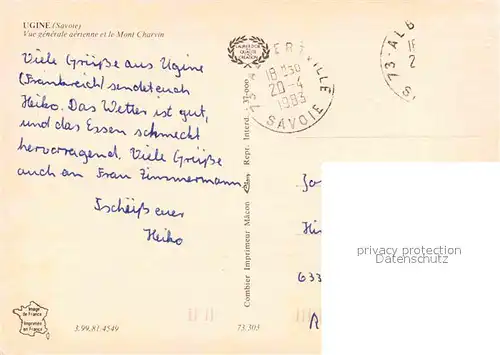 UGINE (Savoie)
Vue générale aérienne et le Mont Charvin
Viele Grüße aus Ugine
(Frankreich) sendet euch
Heiko. Das Wetter ist gut,
und das Essen schmeckt
hervorragend. Viele Grüße
auch an Frau Zimmermann
Tschüß euer
Heiko
Image
de France
Imprimée
en France
3.99.81.4549
73.303
Combier Imprimeur Mâcon Repr. Interd. 37-000
73 ALBERTVILLE
18 H 30
20-4
1983
SAVOIE
73-ALB
18
2
S
633
privacy protection